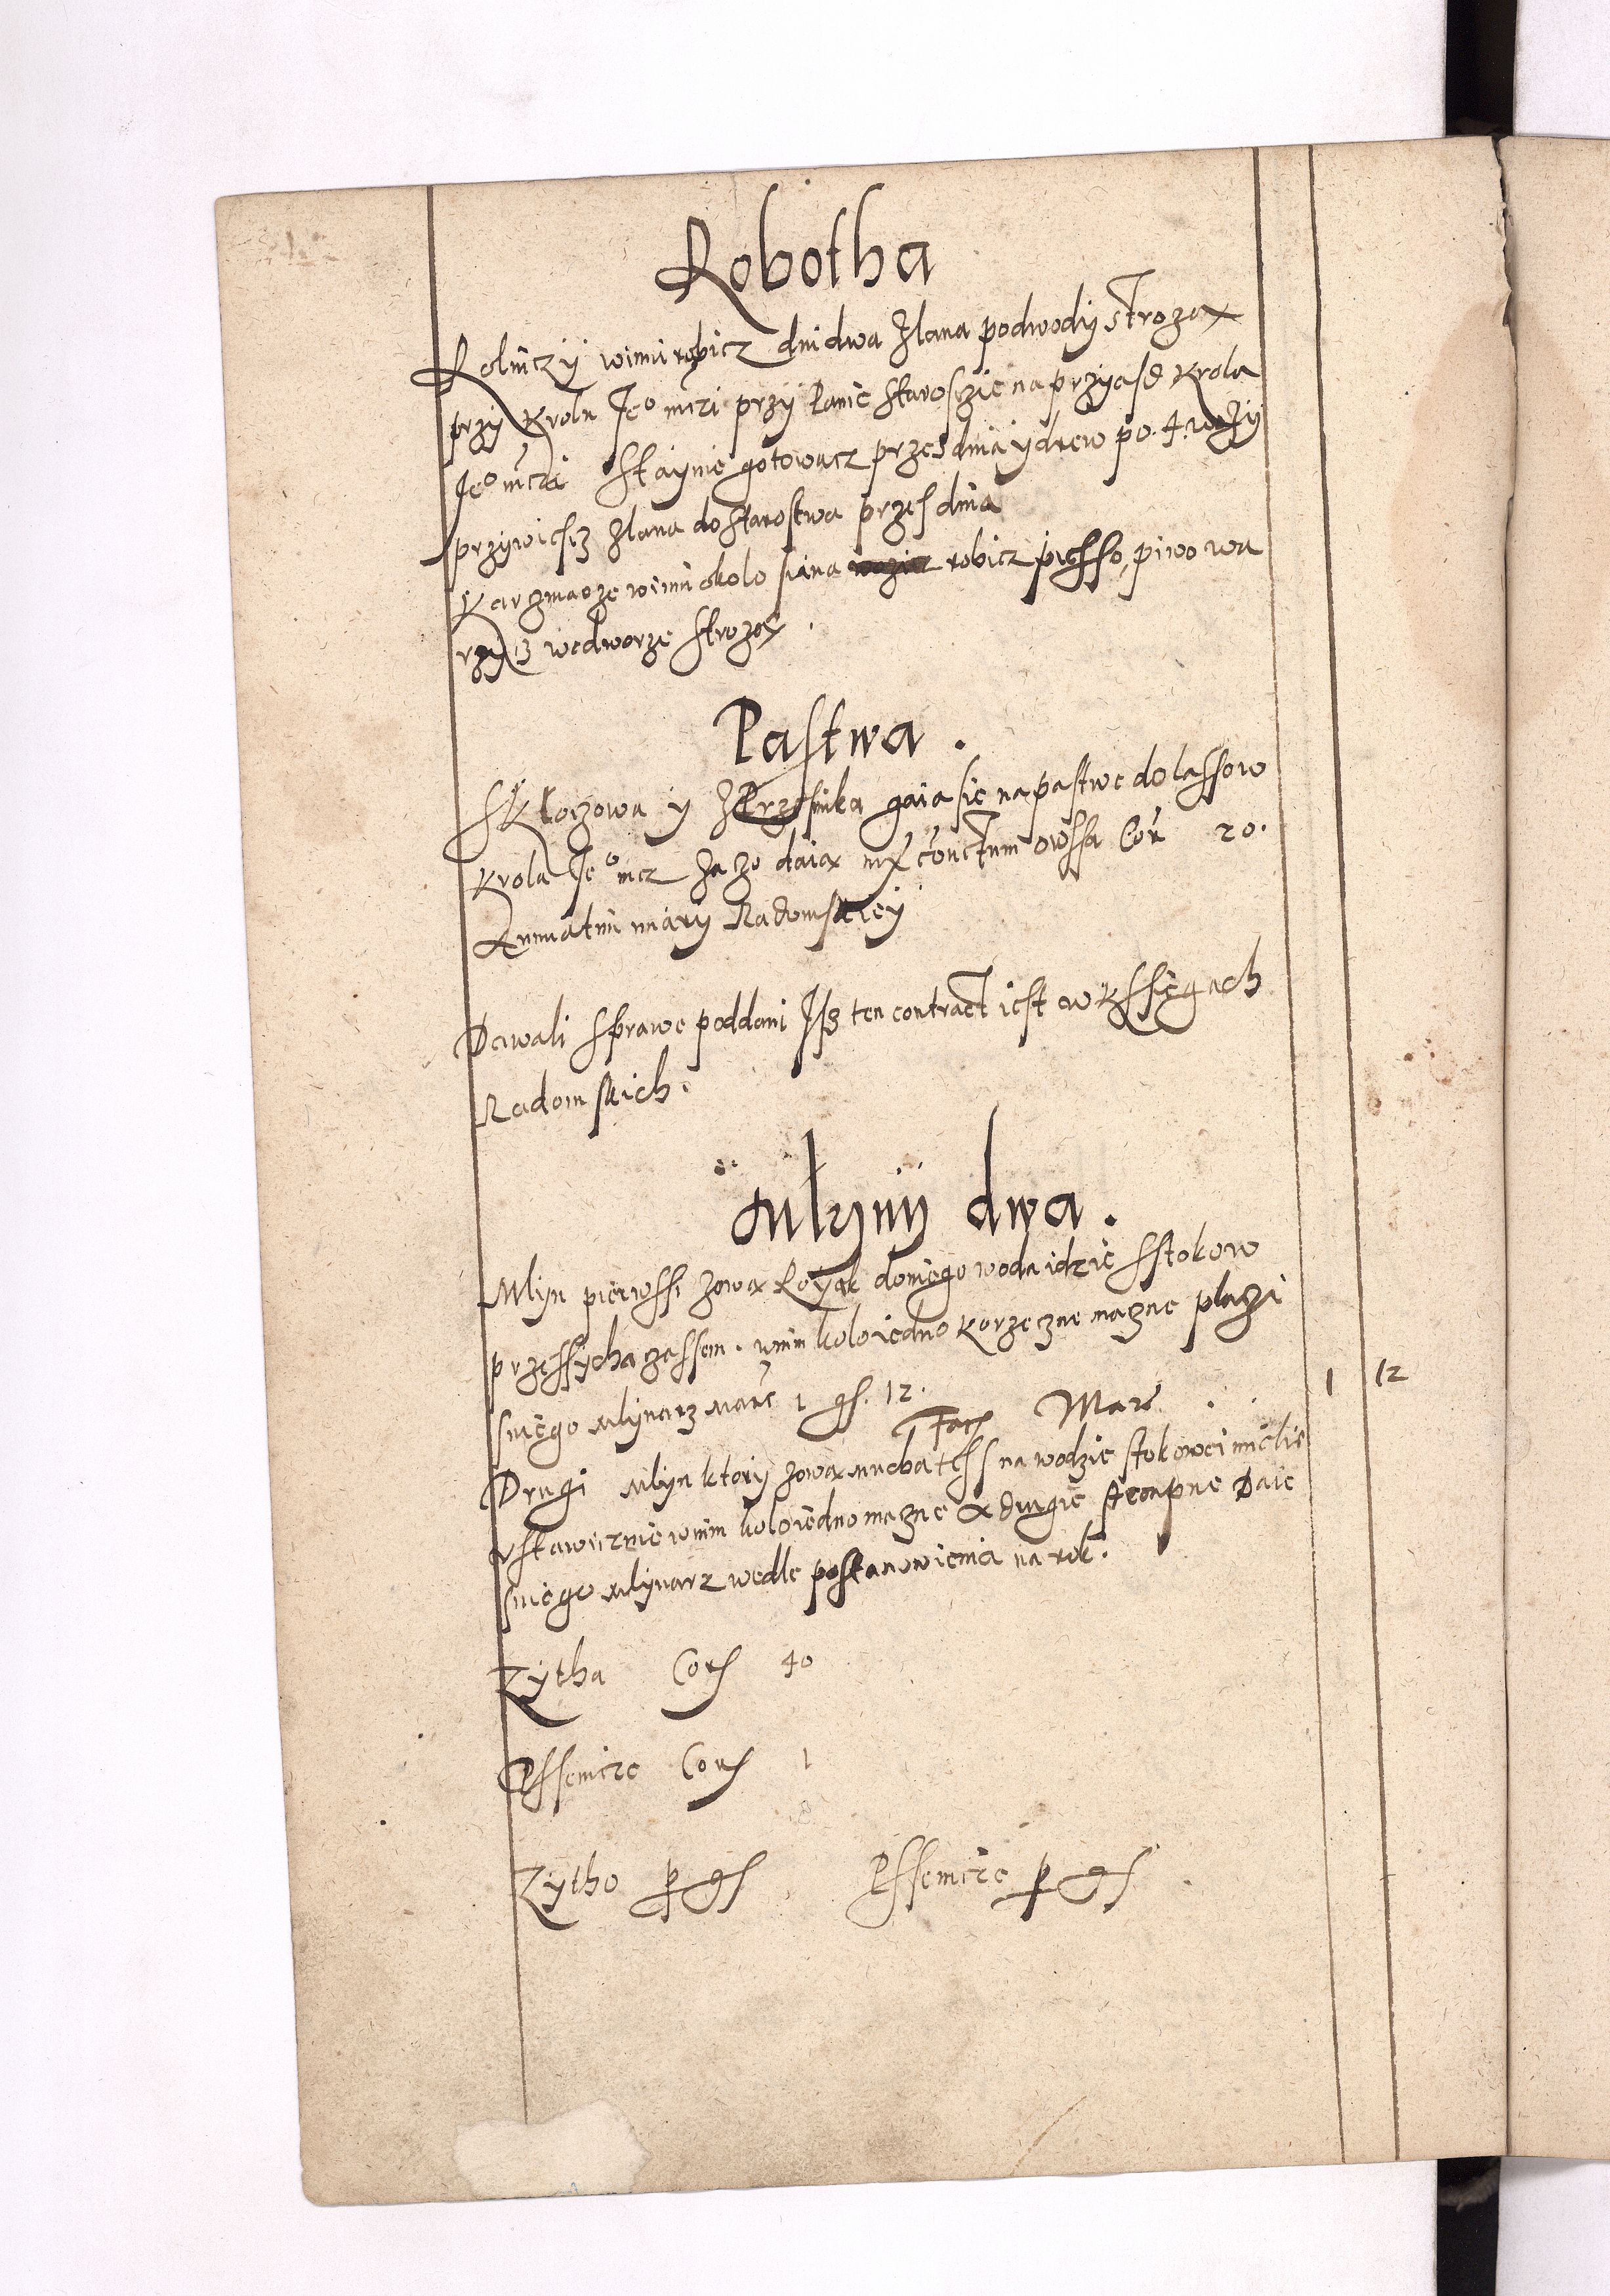 Robotha
Rolniczy winni robicz dni dwa Zlana podwody strozą
przy Krolu Je° mczi przy Panie Staroszie na przyasd Krola
Je° mczi Staynie gotowacz przes dnia y drew po. 4. wozy
przywiescz Zlana do starostwa przes dnia
Karzmarze winni okolo siana robicz piesso, piwo wa
rzycz wedworze strozą.
Pastwa.
S Kloczowa y gaia sie na pastwe do lassow
Krola Je° mcz za zo daią owssa Cor 20.
Annuatim miary Radomskiey
Dawali sprawe poddani Isz ten contract iest w Kssięgach
Radomskich.
Młyny dwa.
Mlyn pierwssi zową Royek do niego woda idzie Sstokow
przessycha czassem. wnim kolo iedno korzeczne mączne placzi
sniego Mlynarz Marc 1 gs. 12.
Facit Marc 1 12
Drugi Mlyn ktory zową Mucha tess na wodzie stokowei miele
ustawicznie wnim kolo iedno mączne a drugie stempne Daie
sniego Mlynarz wedle postanowienia na rok.
Zytha Cors 40
Pssenicze Cors 1
Zytho p gs Pssenicze p gs